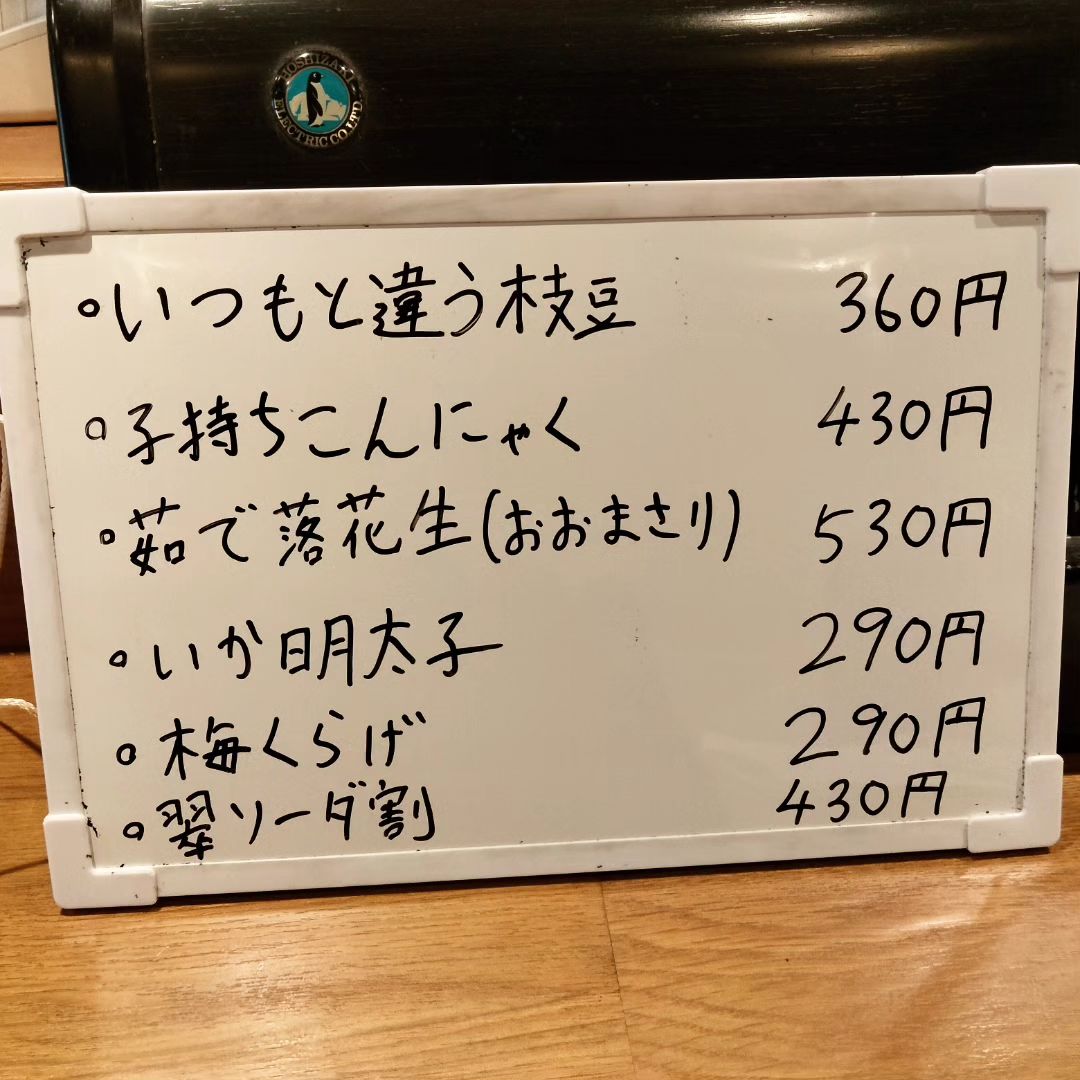 HOSHIZAKI
ELECTRIC CO.LTD.
いつもと違う枝豆 360円
子持ちこんにゃく 430円
茹で落花生(おおまさり) 530円
いか明太子 290円
梅くらげ 290円
翠ソーダ割 430円